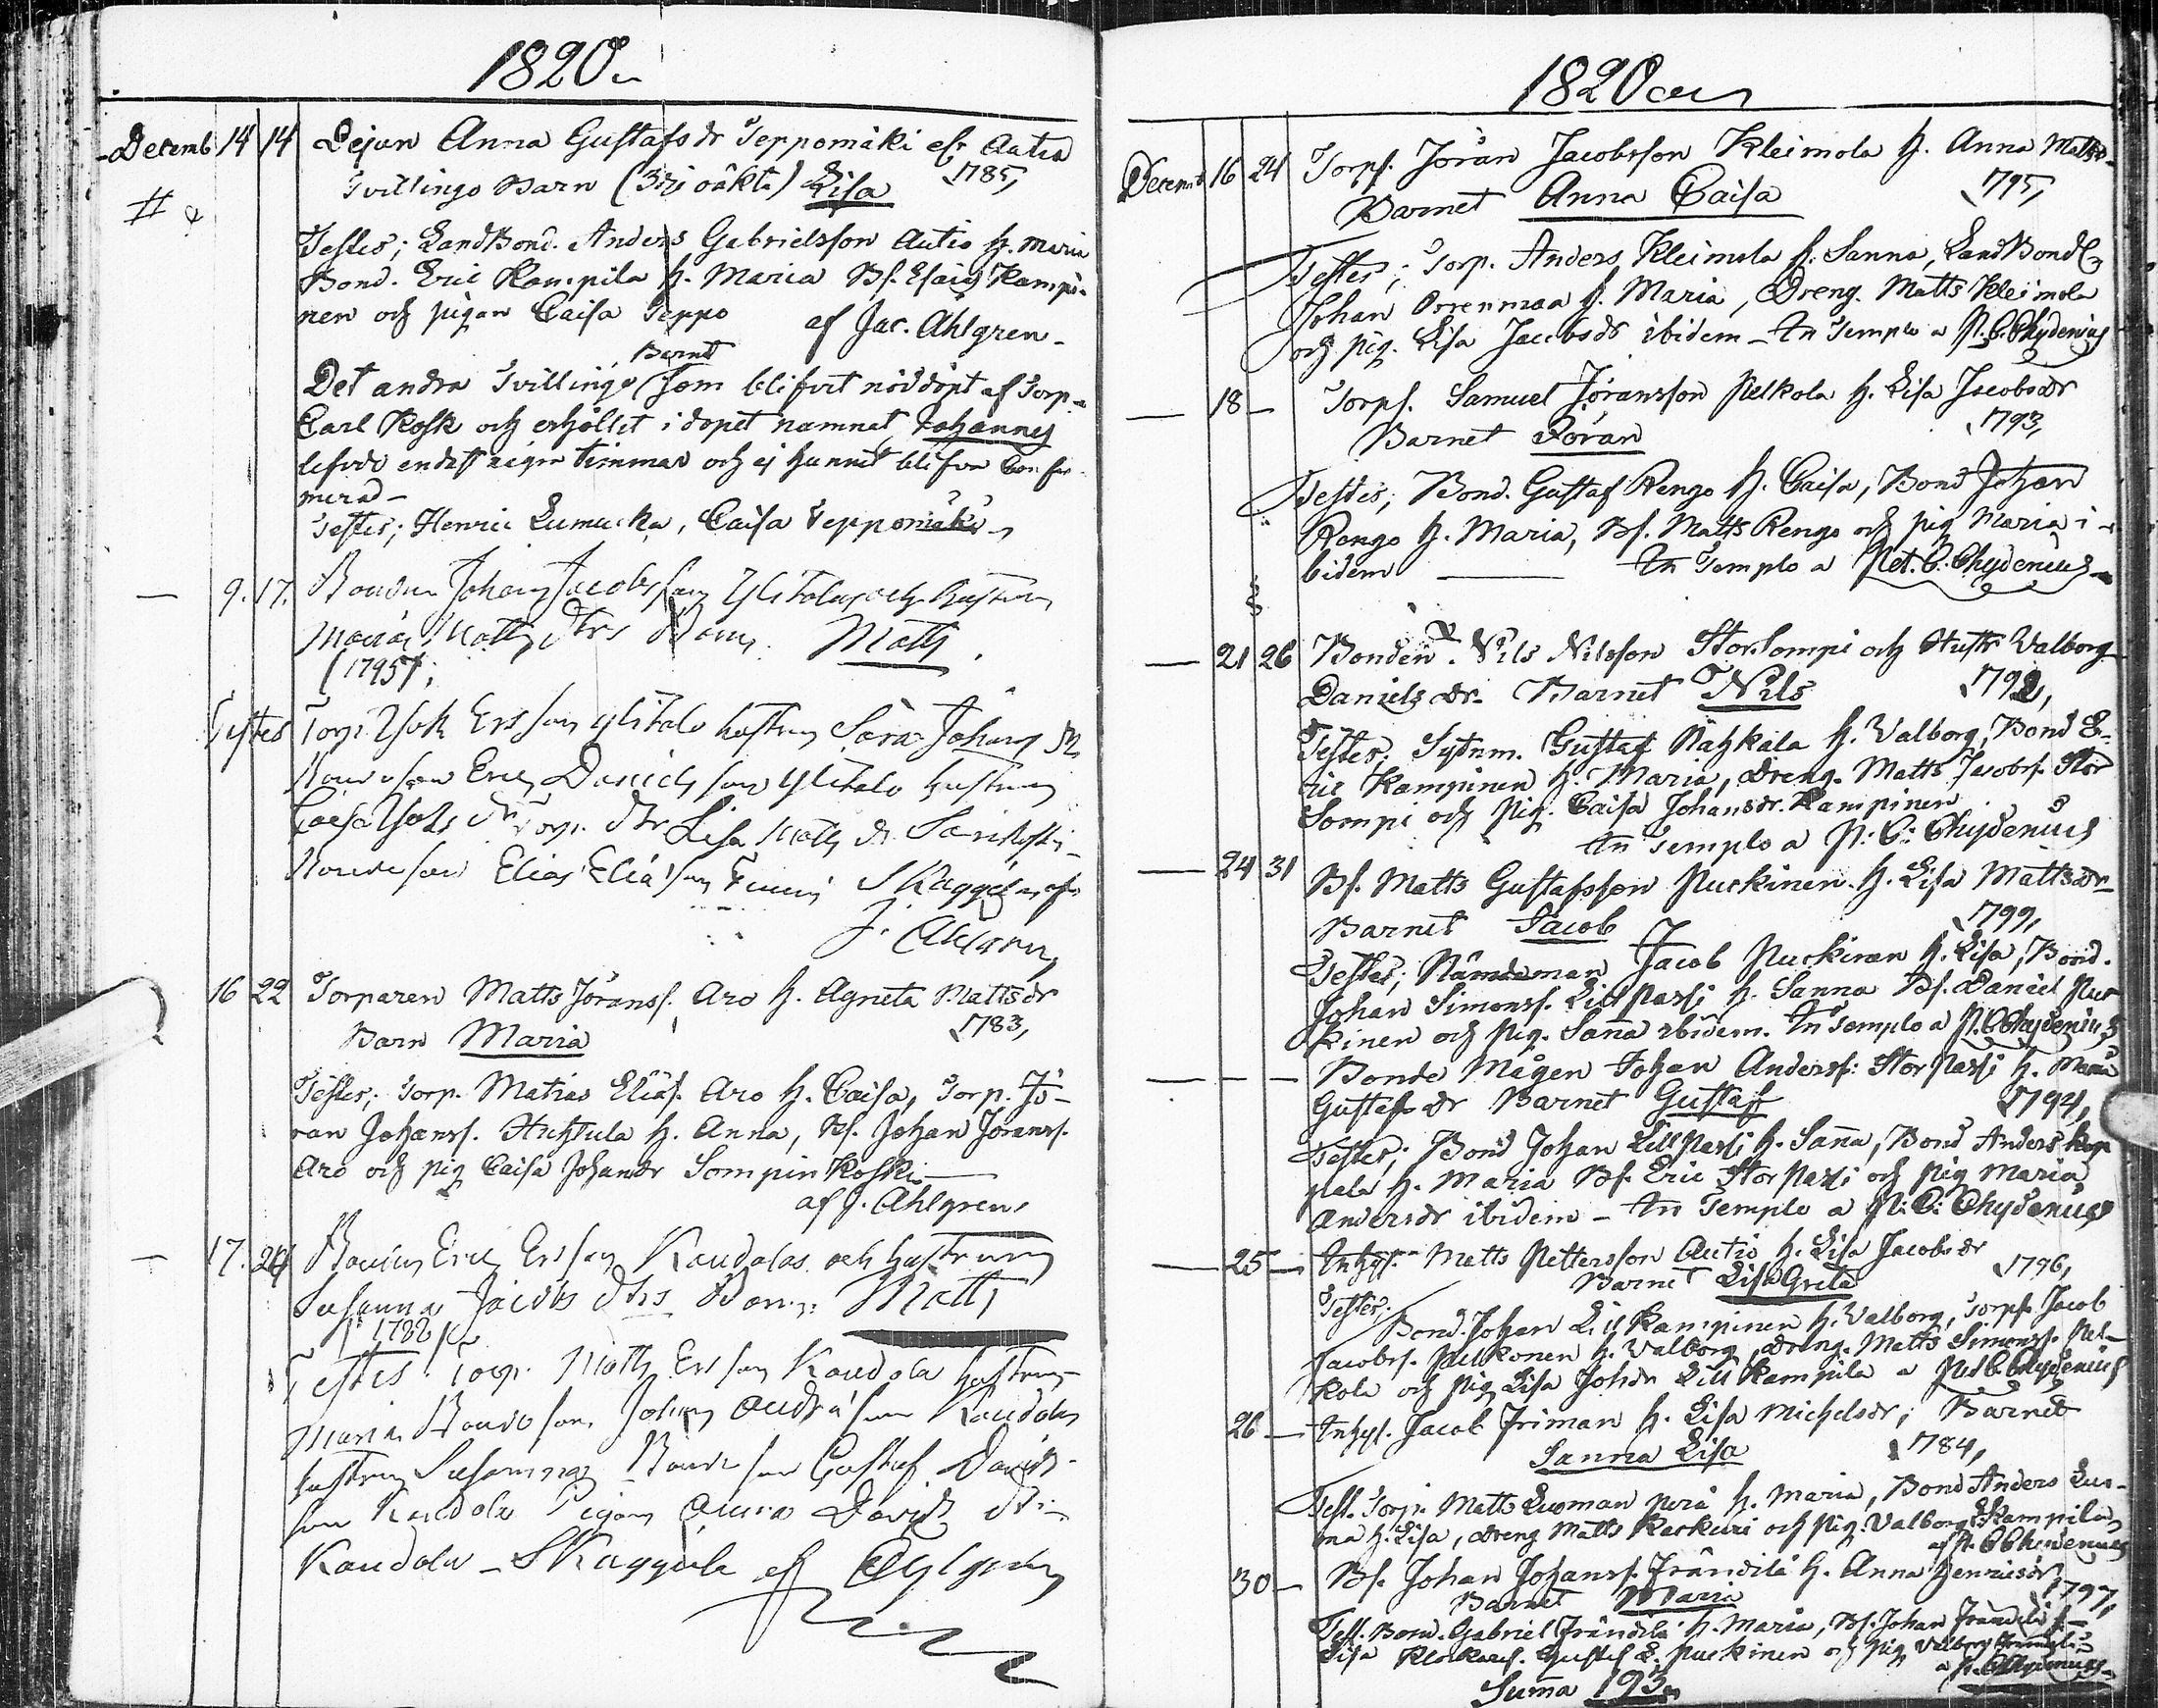 1820
Decemb 14 14 Lejan Anna Gustafs dr Seppomäki efr Autio
Tvillings Barn (oäkta) Lisa 1785,
Testes; LandBond. Anders Gabrielsson Autio h. Maria
Bond. Eric Kampila h. Maria Bs. Esaias Kampi-
nen och pigan Caisa Seppo af Jac. Ahlgren-
Barnet
Det andra Tvillings som blifvit nöddöpt af Torp-
Carl Kosk och erhållit i dopet namnet Johannes
lefvde endast några timmar och ej hunnit blifva Confir-
merad-
Testes; Henric Lumukka, Caisa Seppomäki
— 9. 17. Bonden Johan Jacobsson Ylitalos och hustrun
Maria Matts dtrs Barn Matts.
(1795);
Testes Torp. Isak Ersson Ylitalo hustrun Sara Johans dr
Bondeson Eric Danielsson Ylitalo hustrun
Caisa Isaks dr Torp. dtr Lisa Matts dr Sarikoski
Bondeson Elias Eliasson af
J. Ahlgren
16 22 Torparen Matts Jöranss. Aro h. Agneta Mattsdr
Barn Maria 1783,
Testes; Torp. Matias Eliass. Aro h. Caisa, Torp. Jö-
ran Johanss. Huhtula h. Anna, Bs. Johan Jöranss.
Aro och pig Caisa Johansdr Sompinkoski
af J. Ahlgren
— 17. 24 Bonden Eric Ersson Kaudolas och hustrun
Susanna Jacobs dtrs Barn: Matts
1782
Testes Torp. Matts Ersson Kaudola hustrun
Maria Bondeson Johan Andersson Kaudola
hustrun Susanna Bondeson Gustaf Davids-
son Kaudola Pigan Anna Davids dtr
Kaudola - af Ahlgren
1820
Decemb 16 24 Torps. Jöran Jacobsson Kleimola h. Anna Mattsd-
Barnet Anna Caisa 1795,
Testes; Torp. Anders Kleimola h. Sanna, LandBond
Johan Orrenmaa h. Maria, Dreng. Matts Kleimola
och pig. Lisa Jacobsdr ibidem - In Templo a P. C. Chydenius
— 18 — Torps. Samuel Jöransson Pelkola h. Lisa Jacobsdr
Barnet Jöran 1793,
Testes; Bond. Gustaf Rengo h. Caisa, Bond Johan
Rengo h. Maria, Bs. Matts Rengo och pig Maria i-
bidem — In Templo a Pet. C. Chydenius
— 21 26 Bonden. Nils Nilsson StorSompi och Hustr Valborg
Daniels dr. Barnet Nils 1792,
Testes; Sytnm. Gustaf Rahkala h. Valborg, Bond E-
ric Kampinen h. Maria, dreng. Matts Jacobss. Stor
Sompi och pig. Caisa Johansdr. Kampinen
In Templo a P. C. Chydenius
— 24 31 Bs. Matts Gustafsson Purkinen. h. Lisa Mattsdr
Barnet Jacob 1799,
Testes; Nämdeman Jacob Purkinen h. Lisa, Bond.
Johan Simonss. LillPassi h. Sanna Bs. Daniel Pur
kinen och Pig. Sanna ibidem. In Templo a P. C. Chydenius
— — — Bonde Mågen Johan Anderss: StorPassi h. Maria
Gustafsdr Barnet Gustaf 1794,
Testes; Bond Johan LillPassi h. Sanna, Bond Anders Kop
pala h. Maria Bs. Eric StorPassi och pig Maria
Andersdr ibidem - In Templo a P. C. Chydenius
— 25 — Inhys. Matts Pettersson Autio h. Lisa Jacobsdr
Barnet Lisa Greta 1796,
Testes;
Bond. Johan LillKampinen h. Valborg, Torps Jacob
Jacobss. Pelkonen h. Valborg, dreng. Matts Simonss. Pel-
kola och Pig Lisa Johdr LillKampila a Pet C. Chydenius
26 — Inhys. Jacob Friman h. Lisa Michelsdr; Barnet
Sanna Lisa 1784,
Test. Torp. Matts Luoman perä h. Maria, Bond Anders Luo-
ma h. Lisa, dreng Matts Karkuri och Pig. Valborg Kampila
af P. C. Chydenius
30 — Bs. Johan Johanss. Frändilä h. Anna Henricsdr
Barnet Maria 1797,
Test. Bond. Gabriel Frändilä h. Maria, Bs. Johan Frändilä h-
Lisa Klockares. Gustaf L. Purkinen och Pig Valborg Frändilä
a P. C. Chydenius
Suma 193